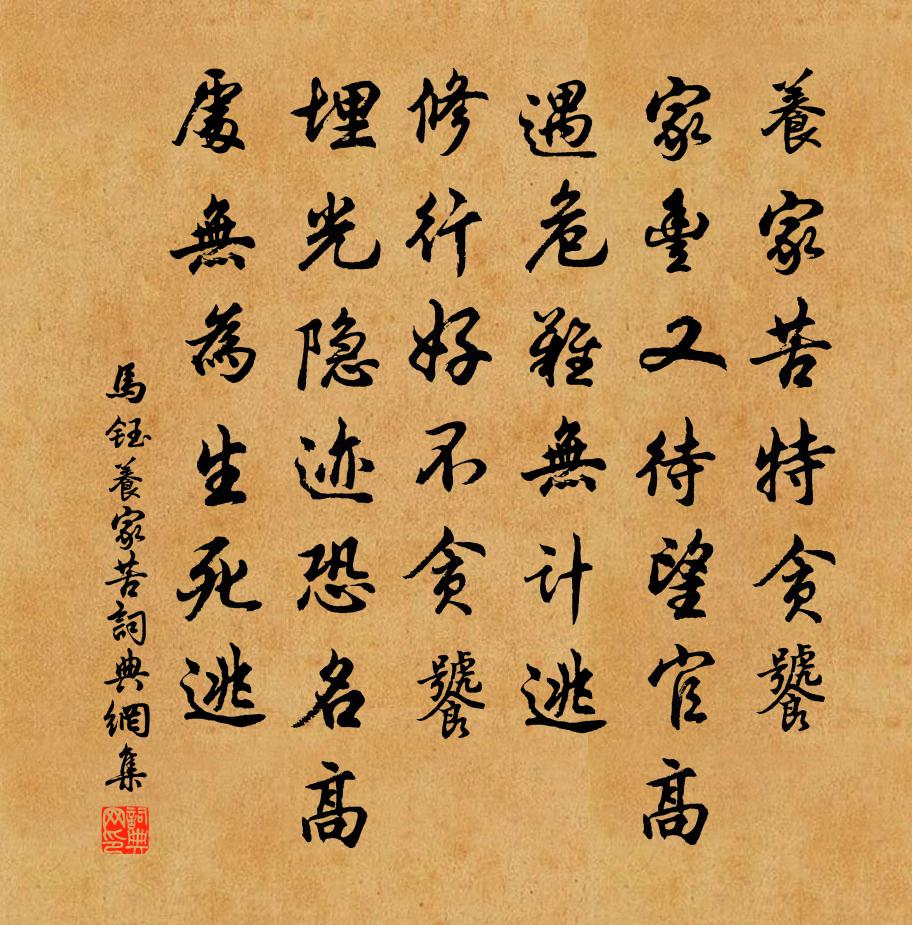 養家苦特貪饕
家豊又待望官高
遇危難無計逃
修行好不貪饕
埋光隐迹恐名高
處無為生死逃
馬鈺養家苦詞典網集
詞典网印